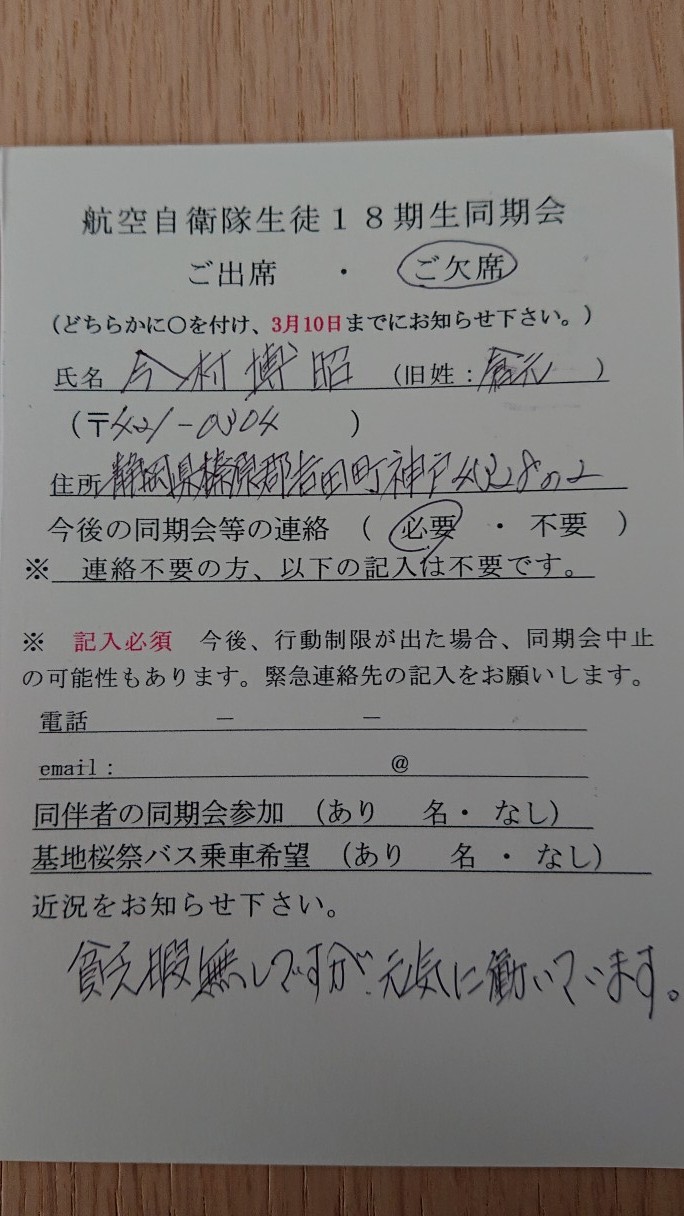 航空自衛隊生徒18期生同期会
ご出席 ・ ご欠席
(どちらかに○を付け、3月10日までにお知らせ下さい。)
氏名 今村博昭 (旧姓:倉元)
(〒421-0304)
住所 静岡県榛原郡吉田町神戸4328の2
今後の同期会等の連絡 ( 必要 ・ 不要 )
※ 連絡不要の方、以下の記入は不要です。
※ 記入必須 今後、行動制限が出た場合、同期会中止
の可能性もあります。緊急連絡先の記入をお願いします。
電話 - -
email: @
同伴者の同期会参加 (あり 名・ なし)
基地桜祭バス乗車希望 (あり 名 ・ なし)
近況をお知らせ下さい。
貧乏暇無しですが、元気に働いています。